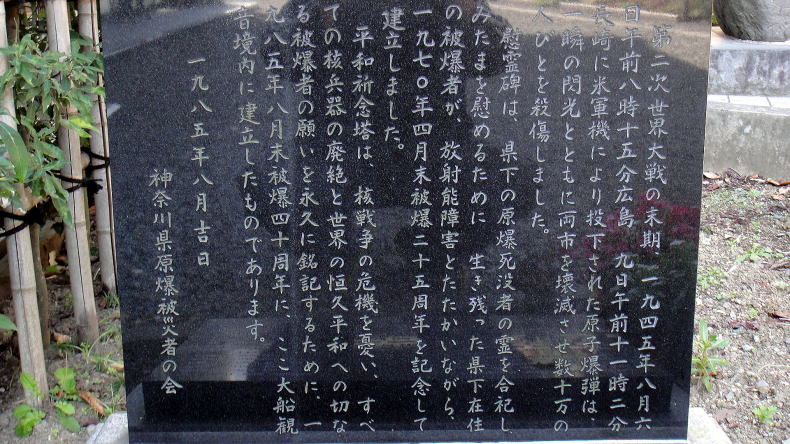 第二次世界大戦の末期、一九四五年八月六
日午前八時十五分広島、九日午前十一時二分
長崎に米軍機により投下された原子爆弾は、
一瞬の閃光とともに両市を壊滅させ数十万の
人びとを殺傷しました。
慰霊碑は、県下の原爆死没者の霊を合祀し
みたまを慰めるために 生き残った県下在住
の被爆者が、放射能障害とたたかいながら、
一九七〇年四月末被爆二十五周年を記念して
建立しました。
平和祈念塔は、核戦争の危機を憂い、すべ
ての核兵器の廃絶と世界の恒久平和への切な
る被爆者の願いを永久に銘記するために、一
九八五年八月末被爆四十周年に、ここ大船観
音境内に建立したものであります。
一九八五年八月吉日
神奈川県原爆被災者の会